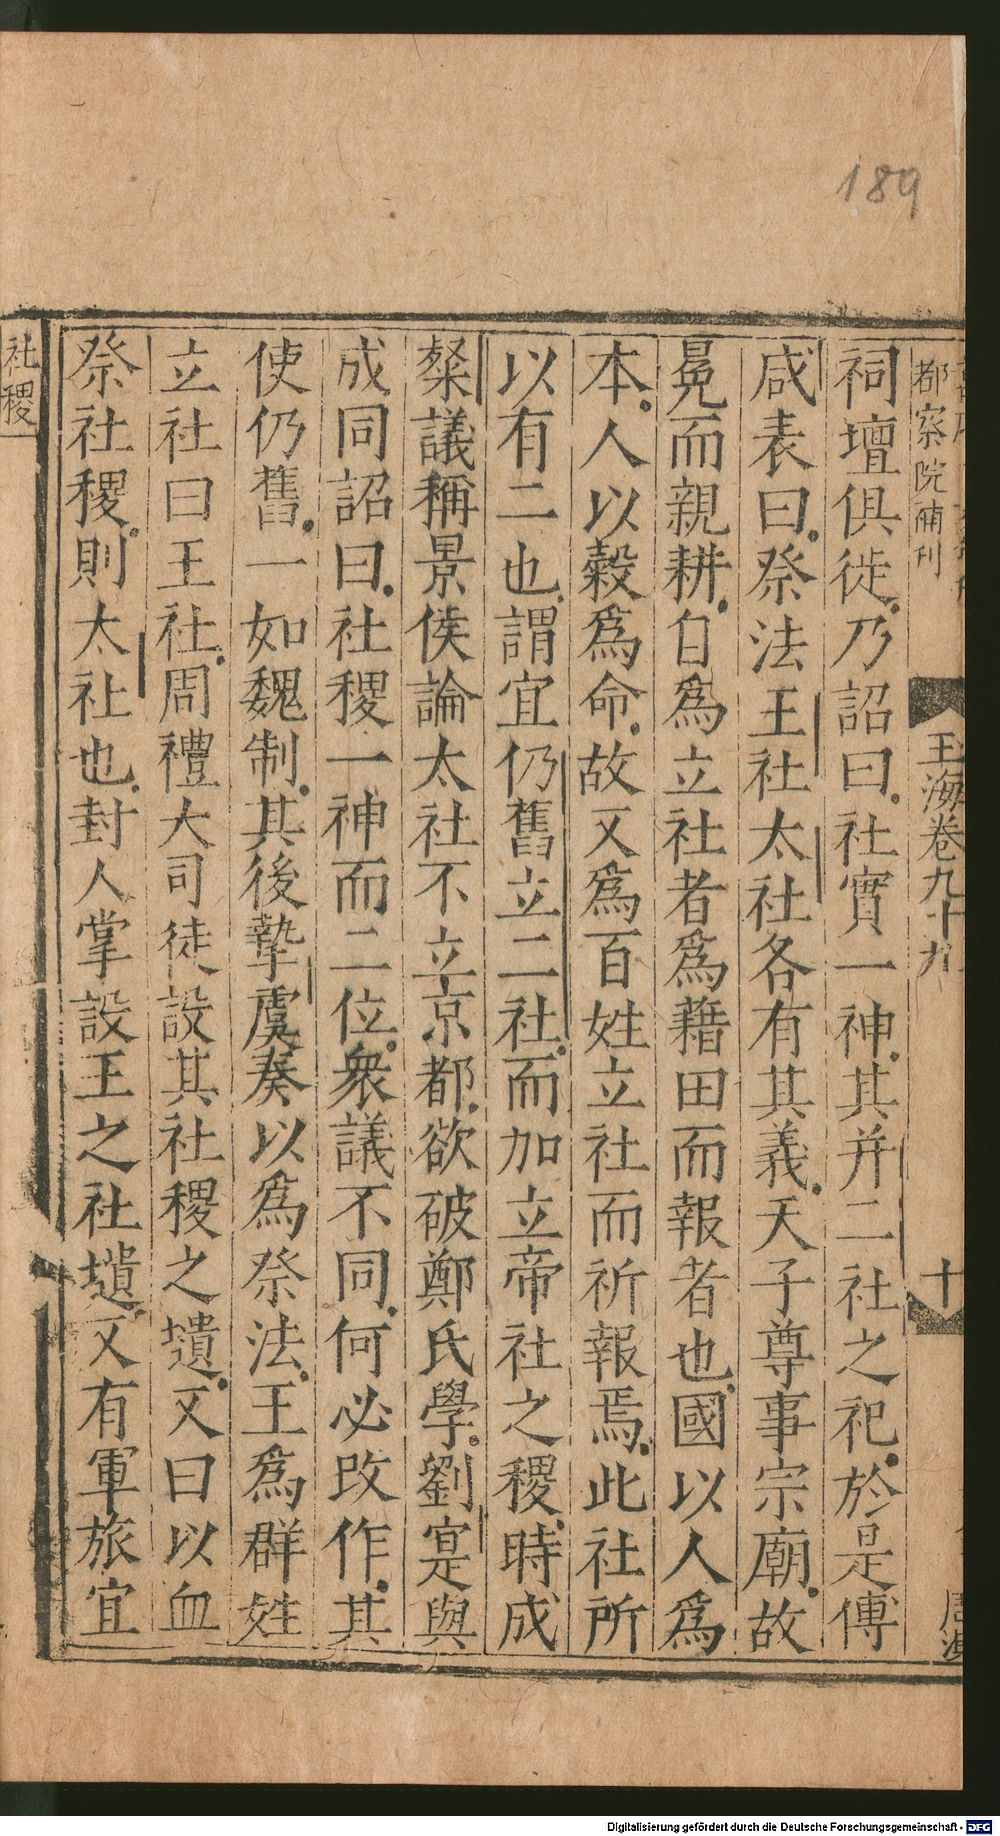 189
都察院補刊
玉海卷九十九
十
祠壇俱徙乃詔曰社實一神其并二社之祀於是傅
咸表曰祭法王社太社各有其義天子尊事宗廟故
冕而親耕自為立社者為藉田而報者也國以人為
本人以穀為命故又為百姓立社而祈報焉此社所
以有二也謂宜仍舊立二社而加立帝社之稷時成
粲議稱景侯論太社不立京都欲破鄭氏學劉寔與
成同詔曰社稷一神而二位衆議不同何必改作其
使仍舊一如魏制其後摯虞奏以為祭法王為群姓
立社曰王社周禮大司徒設其社稷之壝又曰以血
祭社稷則太社也封人掌設王之社壝又有軍旅宜
社稷
Digitalisierung gefördert durch die Deutsche Forschungsgemeinschaft - DFG